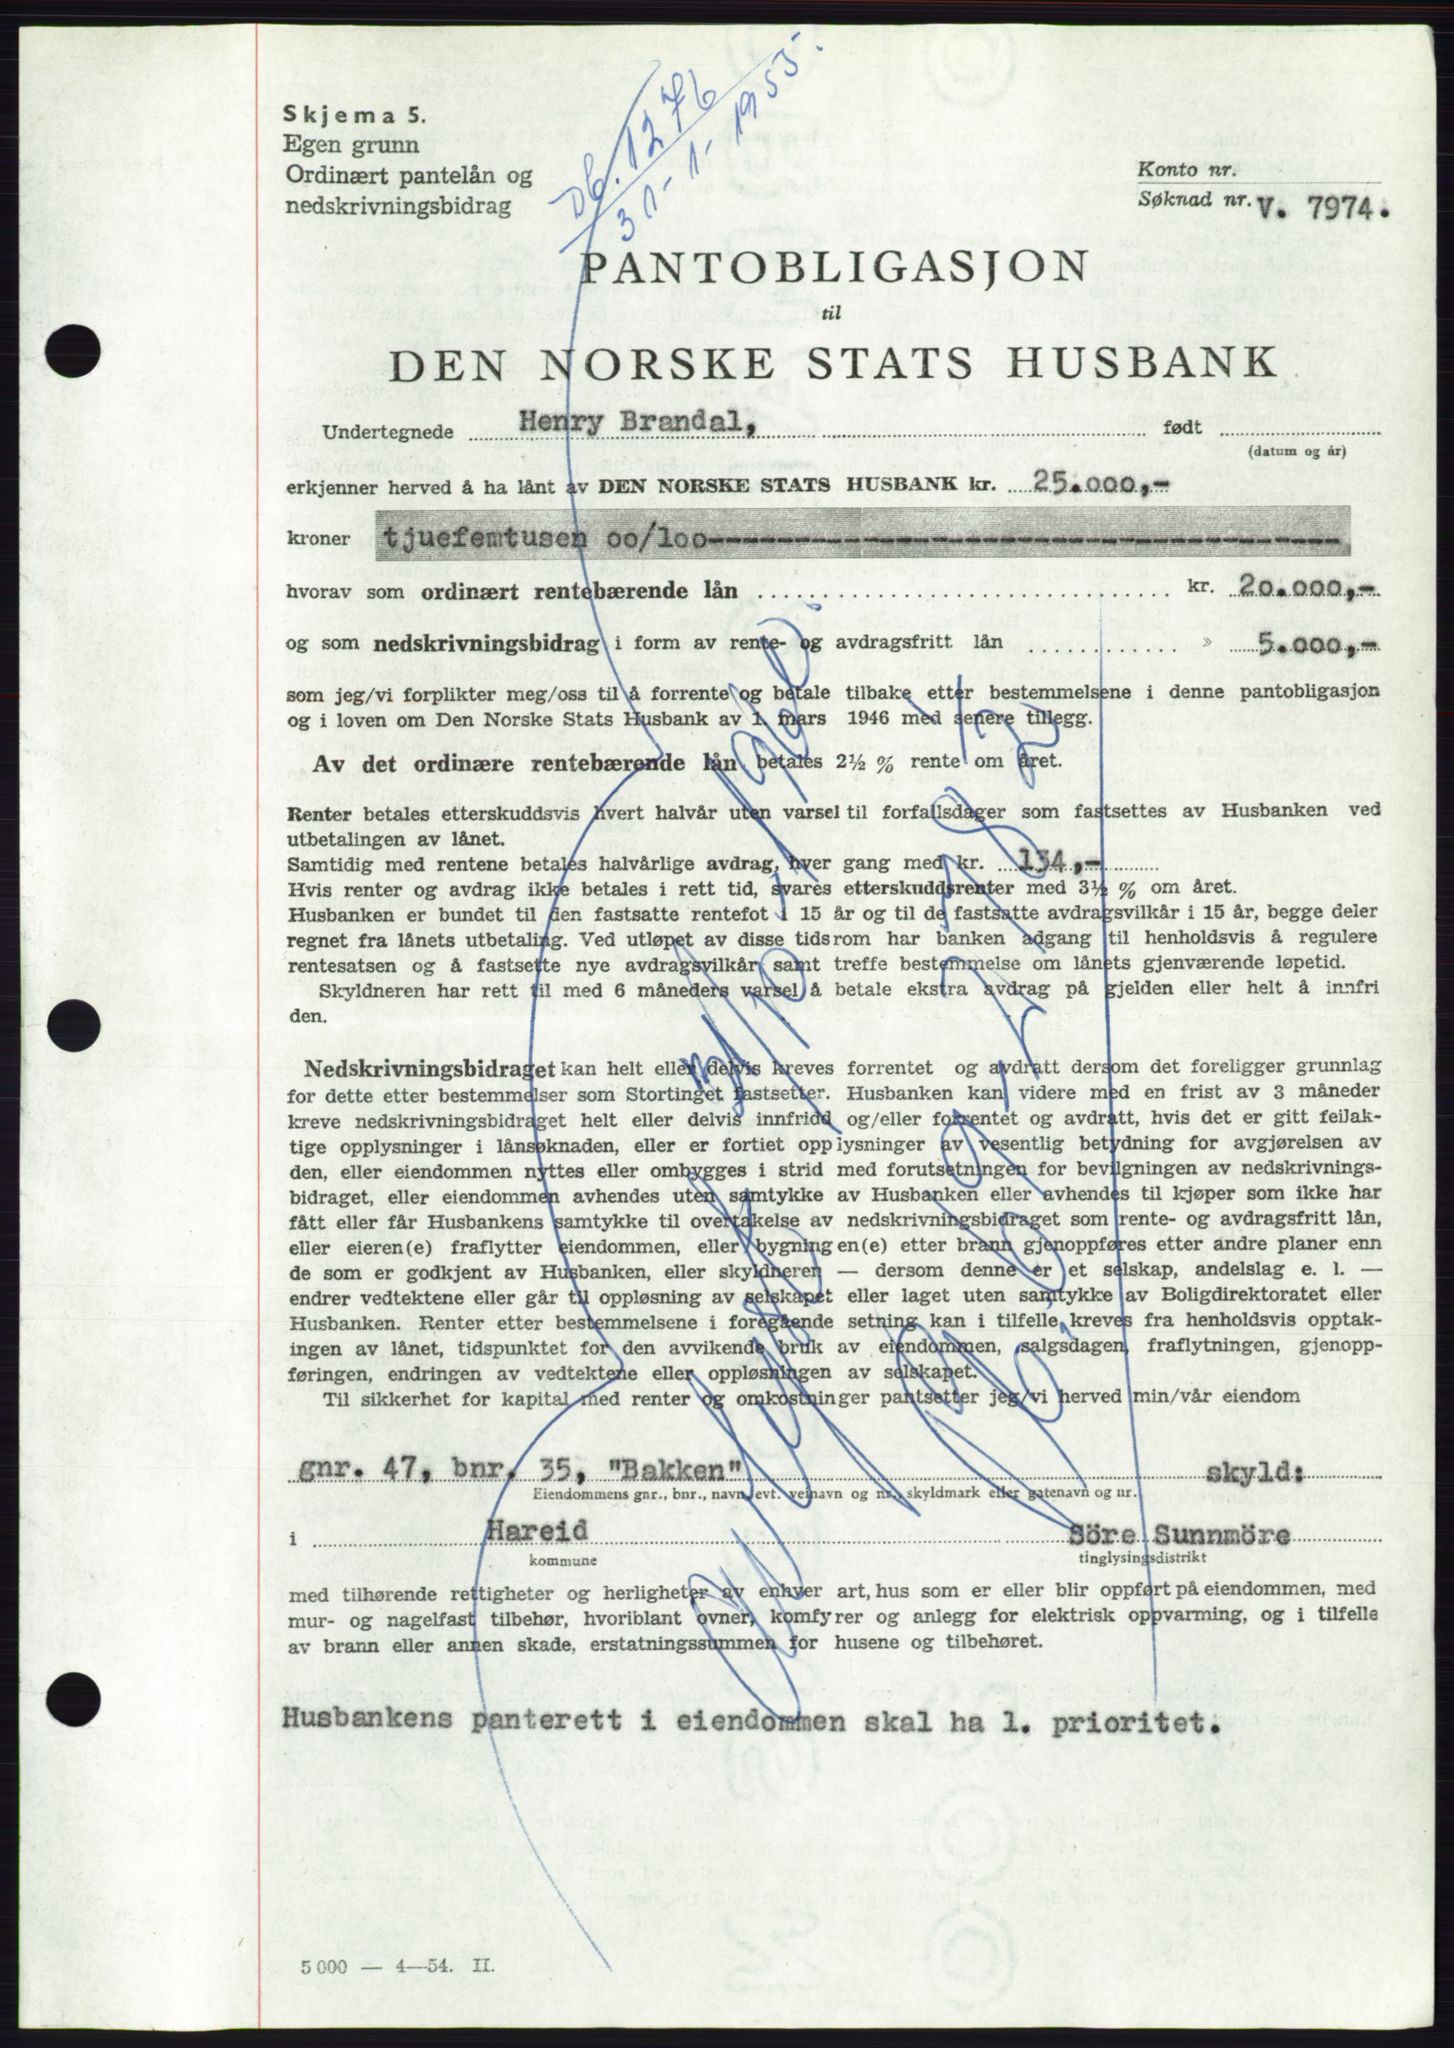 Skjema 5.
Egen grunn
Ordinært pantelån og
nedskrivningsbidrag
Db. 1276
31-1-1955.
Konto nr.
Søknad nr. V. 7974.
PANTOBLIGASJON
til
DEN NORSKE STATS HUSBANK
Undertegnede Henry Brandal, født
(datum og år)
erkjenner herved å ha lånt av DEN NORSKE STATS HUSBANK kr. 25.000,-
kroner tjuefemtusen oo/loo-----------------------------------
hvorav som ordinært rentebærende lån kr. 20.000,-
og som nedskrivningsbidrag i form av rente- og avdragsfritt lån » 5.000,-
som jeg/vi forplikter meg/oss til å forrente og betale tilbake etter bestemmelsene i denne pantobligasjon
og i loven om Den Norske Stats Husbank av 1. mars 1946 med senere tillegg.
Av det ordinære rentebærende lån betales 2½ % rente om året.
Renter betales etterskuddsvis hvert halvår uten varsel til forfallsdager som fastsettes av Husbanken ved
utbetalingen av lånet.
Samtidig med rentene betales halvårlige avdrag, hver gang med kr. 134,-
Hvis renter og avdrag ikke betales i rett tid, svares etterskuddsrenter med 3½ % om året.
Husbanken er bundet til den fastsatte rentefot i 15 år og til de fastsatte avdragsvilkår i 15 år, begge deler
regnet fra lånets utbetaling. Ved utløpet av disse tidsrom har banken adgang til henholdsvis å regulere
rentesatsen og å fastsette nye avdragsvilkår samt treffe bestemmelse om lånets gjenværende løpetid.
Skyldneren har rett til med 6 måneders varsel å betale ekstra avdrag på gjelden eller helt å innfri
den.
Nedskrivningsbidraget kan helt eller delvis kreves forrentet og avdratt dersom det foreligger grunnlag
for dette etter bestemmelser som Stortinget fastsetter. Husbanken kan videre med en frist av 3 måneder
kreve nedskrivningsbidraget helt eller delvis innfridd og/eller forrentet og avdratt, hvis det er gitt feilak-
tige opplysninger i lånsøknaden, eller er fortiet opplysninger av vesentlig betydning for avgjørelsen av
den, eller eiendommen nyttes eller ombygges i strid med forutsetningen for bevilgningen av nedskrivnings-
bidraget, eller eiendommen avhendes uten samtykke av Husbanken eller avhendes til kjøper som ikke har
fått eller får Husbankens samtykke til overtakelse av nedskrivningsbidraget som rente- og avdragsfritt lån,
eller eieren(e) fraflytter eiendommen, eller bygningen(e) etter brann gjenoppføres etter andre planer enn
de som er godkjent av Husbanken, eller skyldneren — dersom denne er et selskap, andelslag e. l. —
endrer vedtektene eller går til oppløsning av selskapet eller laget uten samtykke av Boligdirektoratet eller
Husbanken. Renter etter bestemmelsene i foregående setning kan i tilfelle kreves fra henholdsvis opptak-
ingen av lånet, tidspunktet for den avvikende bruk av eiendommen, salgsdagen, fraflytningen, gjenopp-
føringen, endringen av vedtektene eller oppløsningen av selskapet.
Til sikkerhet for kapital med renter og omkostninger pantsetter jeg/vi herved min/vår eiendom
gnr. 47, bnr. 35, "Bakken" skyld:
Eiendommens gnr., bnr., navn, evt. veinavn og nr., skyldmark eller gatenavn og nr.
i Hareid Söre Sunnmöre
kommune tinglysingsdistrikt
med tilhørende rettigheter og herligheter av enhver art, hus som er eller blir oppført på eiendommen, med
mur- og nagelfast tilbehør, hvoriblant ovner, komfyrer og anlegg for elektrisk oppvarming, og i tilfelle
av brann eller annen skade, erstatningssummen for husene og tilbehøret.
Husbankens panterett i eiendommen skal ha 1. prioritet.
5 000 — 4—54. II.